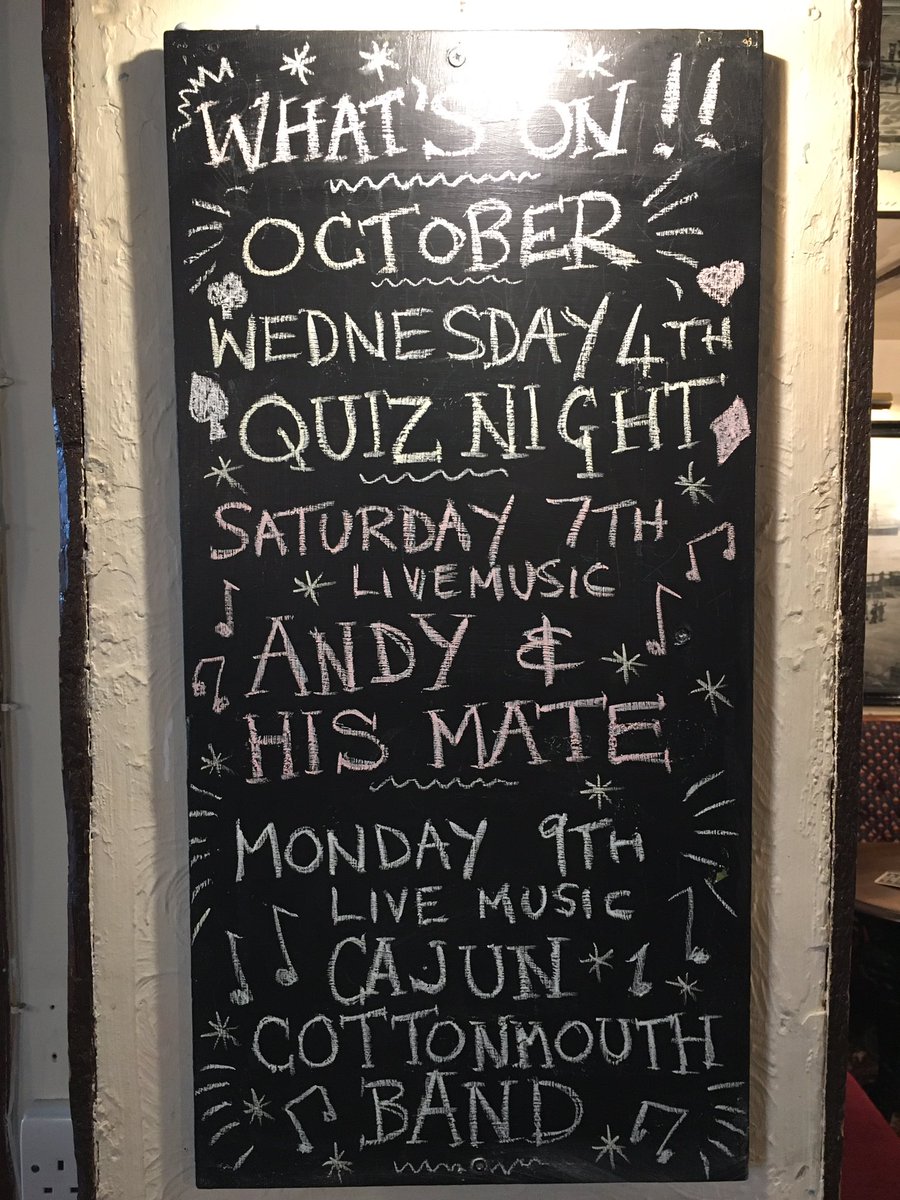 WHAT'S ON !!
OCTOBER
WEDNESDAY 4TH
QUIZ NIGHT
SATURDAY 7TH
LIVE MUSIC
ANDY &
HIS MATE
MONDAY 9TH
LIVE MUSIC
CAJUN
COTTONMOUTH
BAND